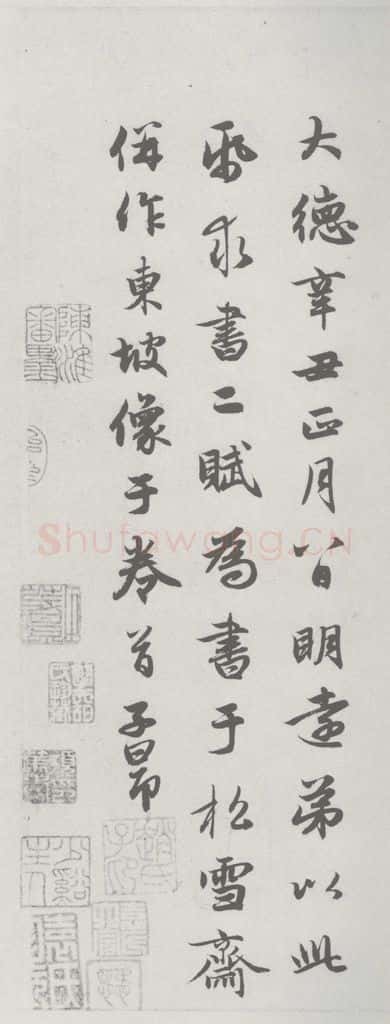 大德辛丑正月八日明遠弟以此
帋求書二賦為書于松雪齋
併作東坡像于卷首子昂
趙氏子昂
Shufawang.CN